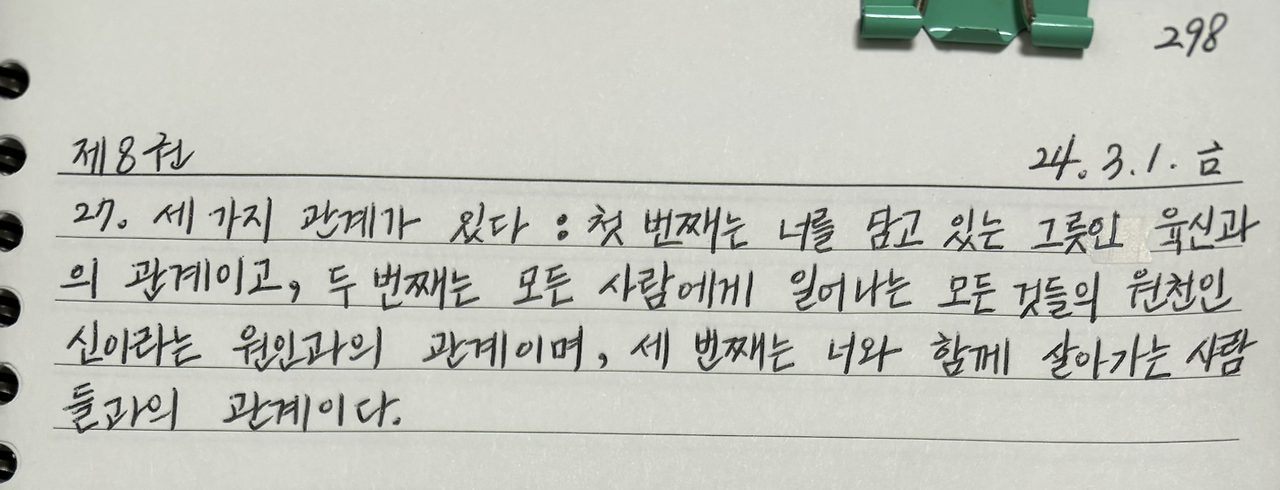 298
제8권 24.3.1. 금
27. 세 가지 관계가 있다 : 첫 번째는 너를 담고 있는 그릇인 육신과
의 관계이고, 두 번째는 모든 사람에게 일어나는 모든 것들의 원천인
신이라는 원인과의 관계이며, 세 번째는 너와 함께 살아가는 사람
들과의 관계이다.